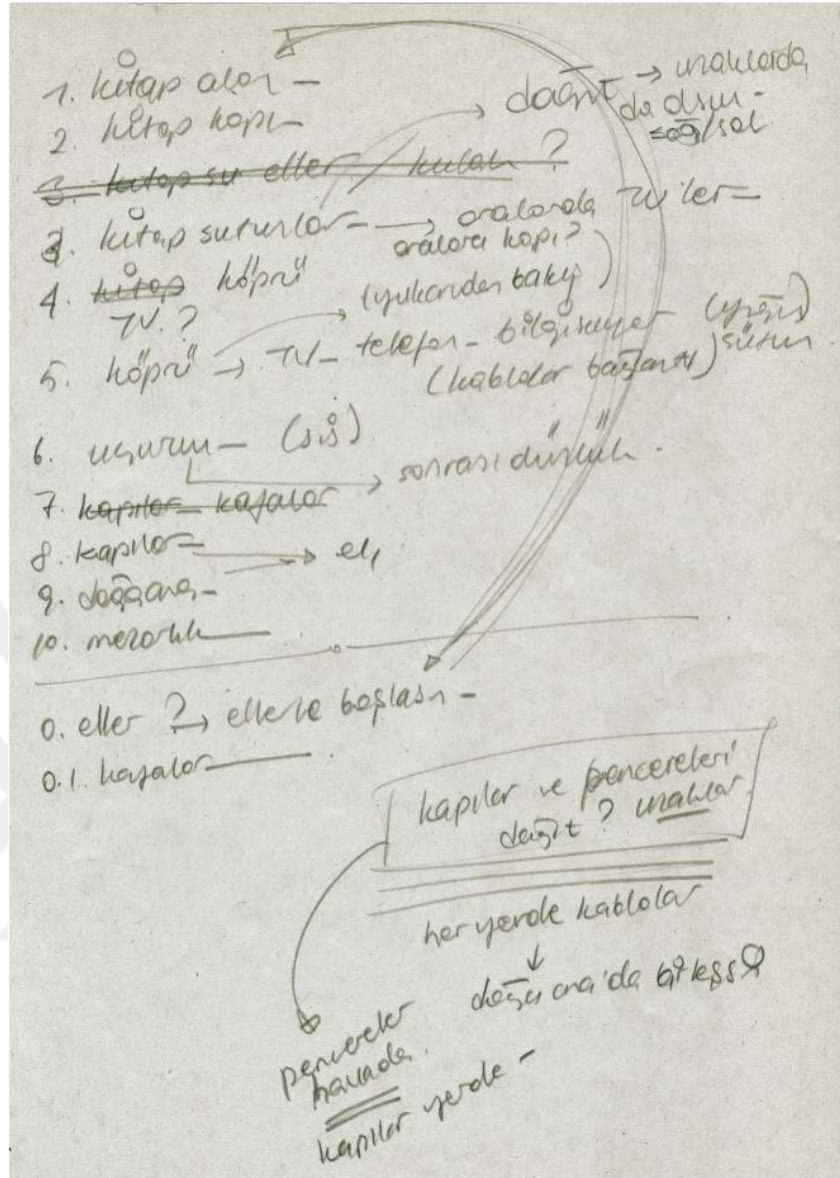 1. kitap alan –
2. kitap kapı –
dağıt → uzaklarda
da olsun –
sağ/sol
3. kitap su eller / kulak ?
3. kitap sutunlar – → aralarda TV'ler –
aralara kapı?
4. kitap köprü
(yukarıdan bakış)
TV. ?
5. köprü → TV – telefon – bilgisayar (yığın) sütun.
(kablolar bağlantı)
6. uçurum – (sis)
sonrası düzlük.
7. kapılar – kafalar
8. kapılar – → el,
9. doğaana –
10. mezarlık
0. eller ? → ellerle başlasın –
0.1. kafalar
kapılar ve pencereleri
dağıt ? uzaklar.
her yerde kablolar
↓
da
pencereler
havada.
kapılar yerde –